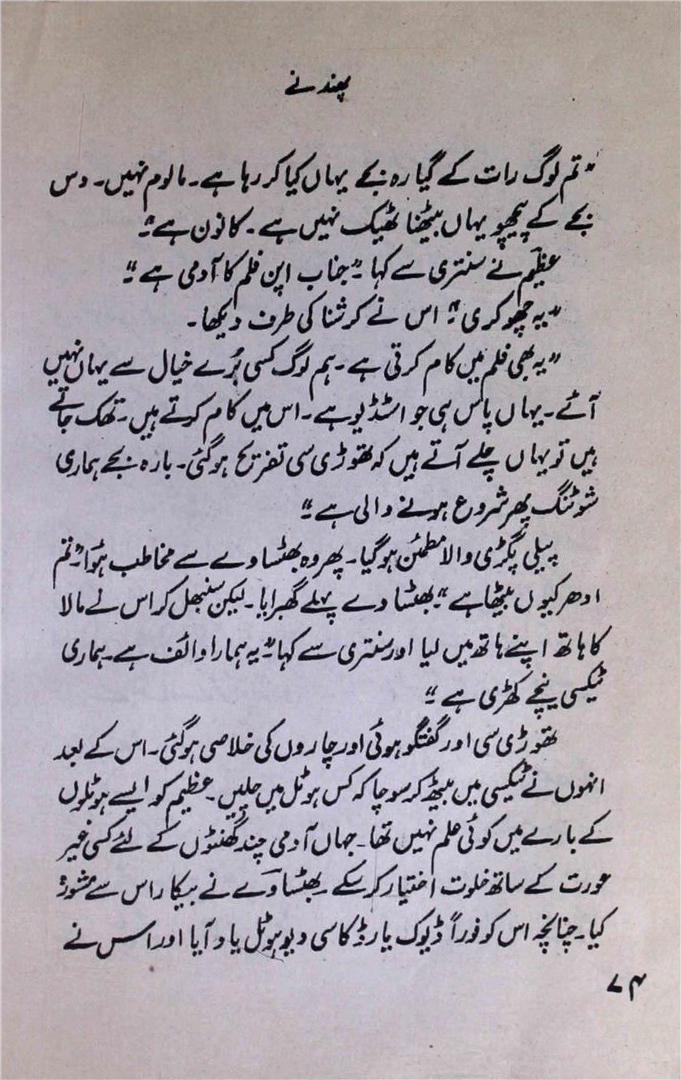 پھندنے
”تم لوگ رات کے گیارہ بجے یہاں کیا کر رہا ہے۔ مالوم نہیں۔ دس
بجے کے پیچھو یہاں بیٹھنا ٹھیک نہیں ہے۔ کانون ہے“۔
عظیم نے سنتری سے کہا ”جناب اپن فلم کا آدمی ہے“
”یہ چھوکری“؟ اس نے کرشنا کی طرف دیکھا۔
”یہ بھی فلم میں کام کرتی ہے۔ ہم لوگ کسی بُرے خیال سے یہاں نہیں
آئے۔ یہاں پاس ہی جو اسٹڈیو ہے۔ اس میں کام کرتے ہیں۔ تھک جاتے
ہیں تو یہاں چلے آتے ہیں کہ تھوڑی سی تفریح ہوگئی۔ بارہ بجے ہماری
شوٹنگ پھر شروع ہونے والی ہے“
پیلی پگڑی والا مطمئن ہوگیا۔ پھر وہ بھٹساوے سے مخاطب ہُوا ”تم
ادھر کیوں بیٹھا ہے“۔ بھٹساوے پہلے گھبرایا۔ لیکن سنبھل کر اس نے مالا
کا ہاتھ اپنے ہاتھ میں لیا اور سنتری سے کہا ”یہ ہمارا وائف ہے۔ ہماری
ٹیکسی نیچے کھڑی ہے“
تھوڑی سی اور گفتگو ہوئی اور چاروں کی خلاصی ہوگئی۔ اس کے بعد
انہوں نے ٹیکسی میں بیٹھ کر سوچا کہ کس ہوٹل میں چلیں۔ عظیم کو ایسے ہوٹلوں
کے بارے میں کوئی علم نہیں تھا۔ جہاں آدمی چند گھنٹوں کے لئے کسی غیر
عورت کے ساتھ خلوت اختیار کر سکے۔ بھٹساوے نے بیکار اس سے مشورہ
کیا۔ چنانچہ اس کو فوراً ڈیوک یارڈ کا سی ویو ہوٹل یاد آیا اور اس نے
۷۴